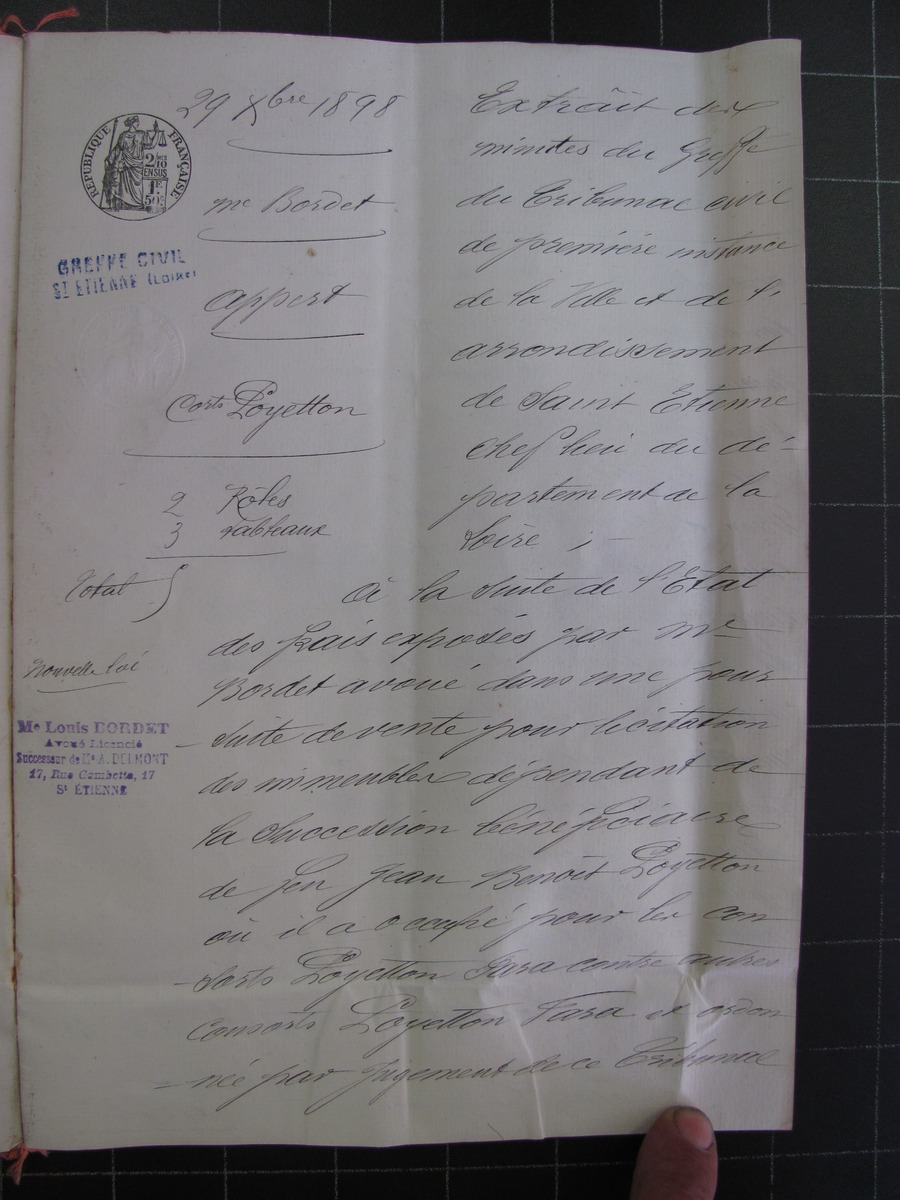 29 Xbre 1898
RÉPUBLIQUE FRANÇAISE
2/10
EN SUS
1F
50c
Me Bordet
GREFFE CIVIL
ST ETIENNE (LOIRE)
appert
Corts Loyetton
2 Rôles
3 tableaux
Total 5
Nouvelle loi
Me Louis BORDET
Avoué Licencié
Successeur de Me A. DELMONT
17, Rue Gambetta, 17
ST ÉTIENNE
Extrait des
minutes du Greffe
du Tribunal civil
de première instance
de la Ville et de l'
arrondissement
de Saint Etienne
chef lieu du dé-
partement de la
Loire ; —
à la suite de l'Etat
des frais exposés par Me
Bordet avoué dans une pour
- suite de vente pour licitation
des immeubles dépendant de
la succession bénéficiaire
de feu Jean Benoît Loyetton
où il a occupé pour les con
- sorts Loyetton Fara contre autres
consorts Loyetton Fara et ordon
- née par jugement de ce Tribunal